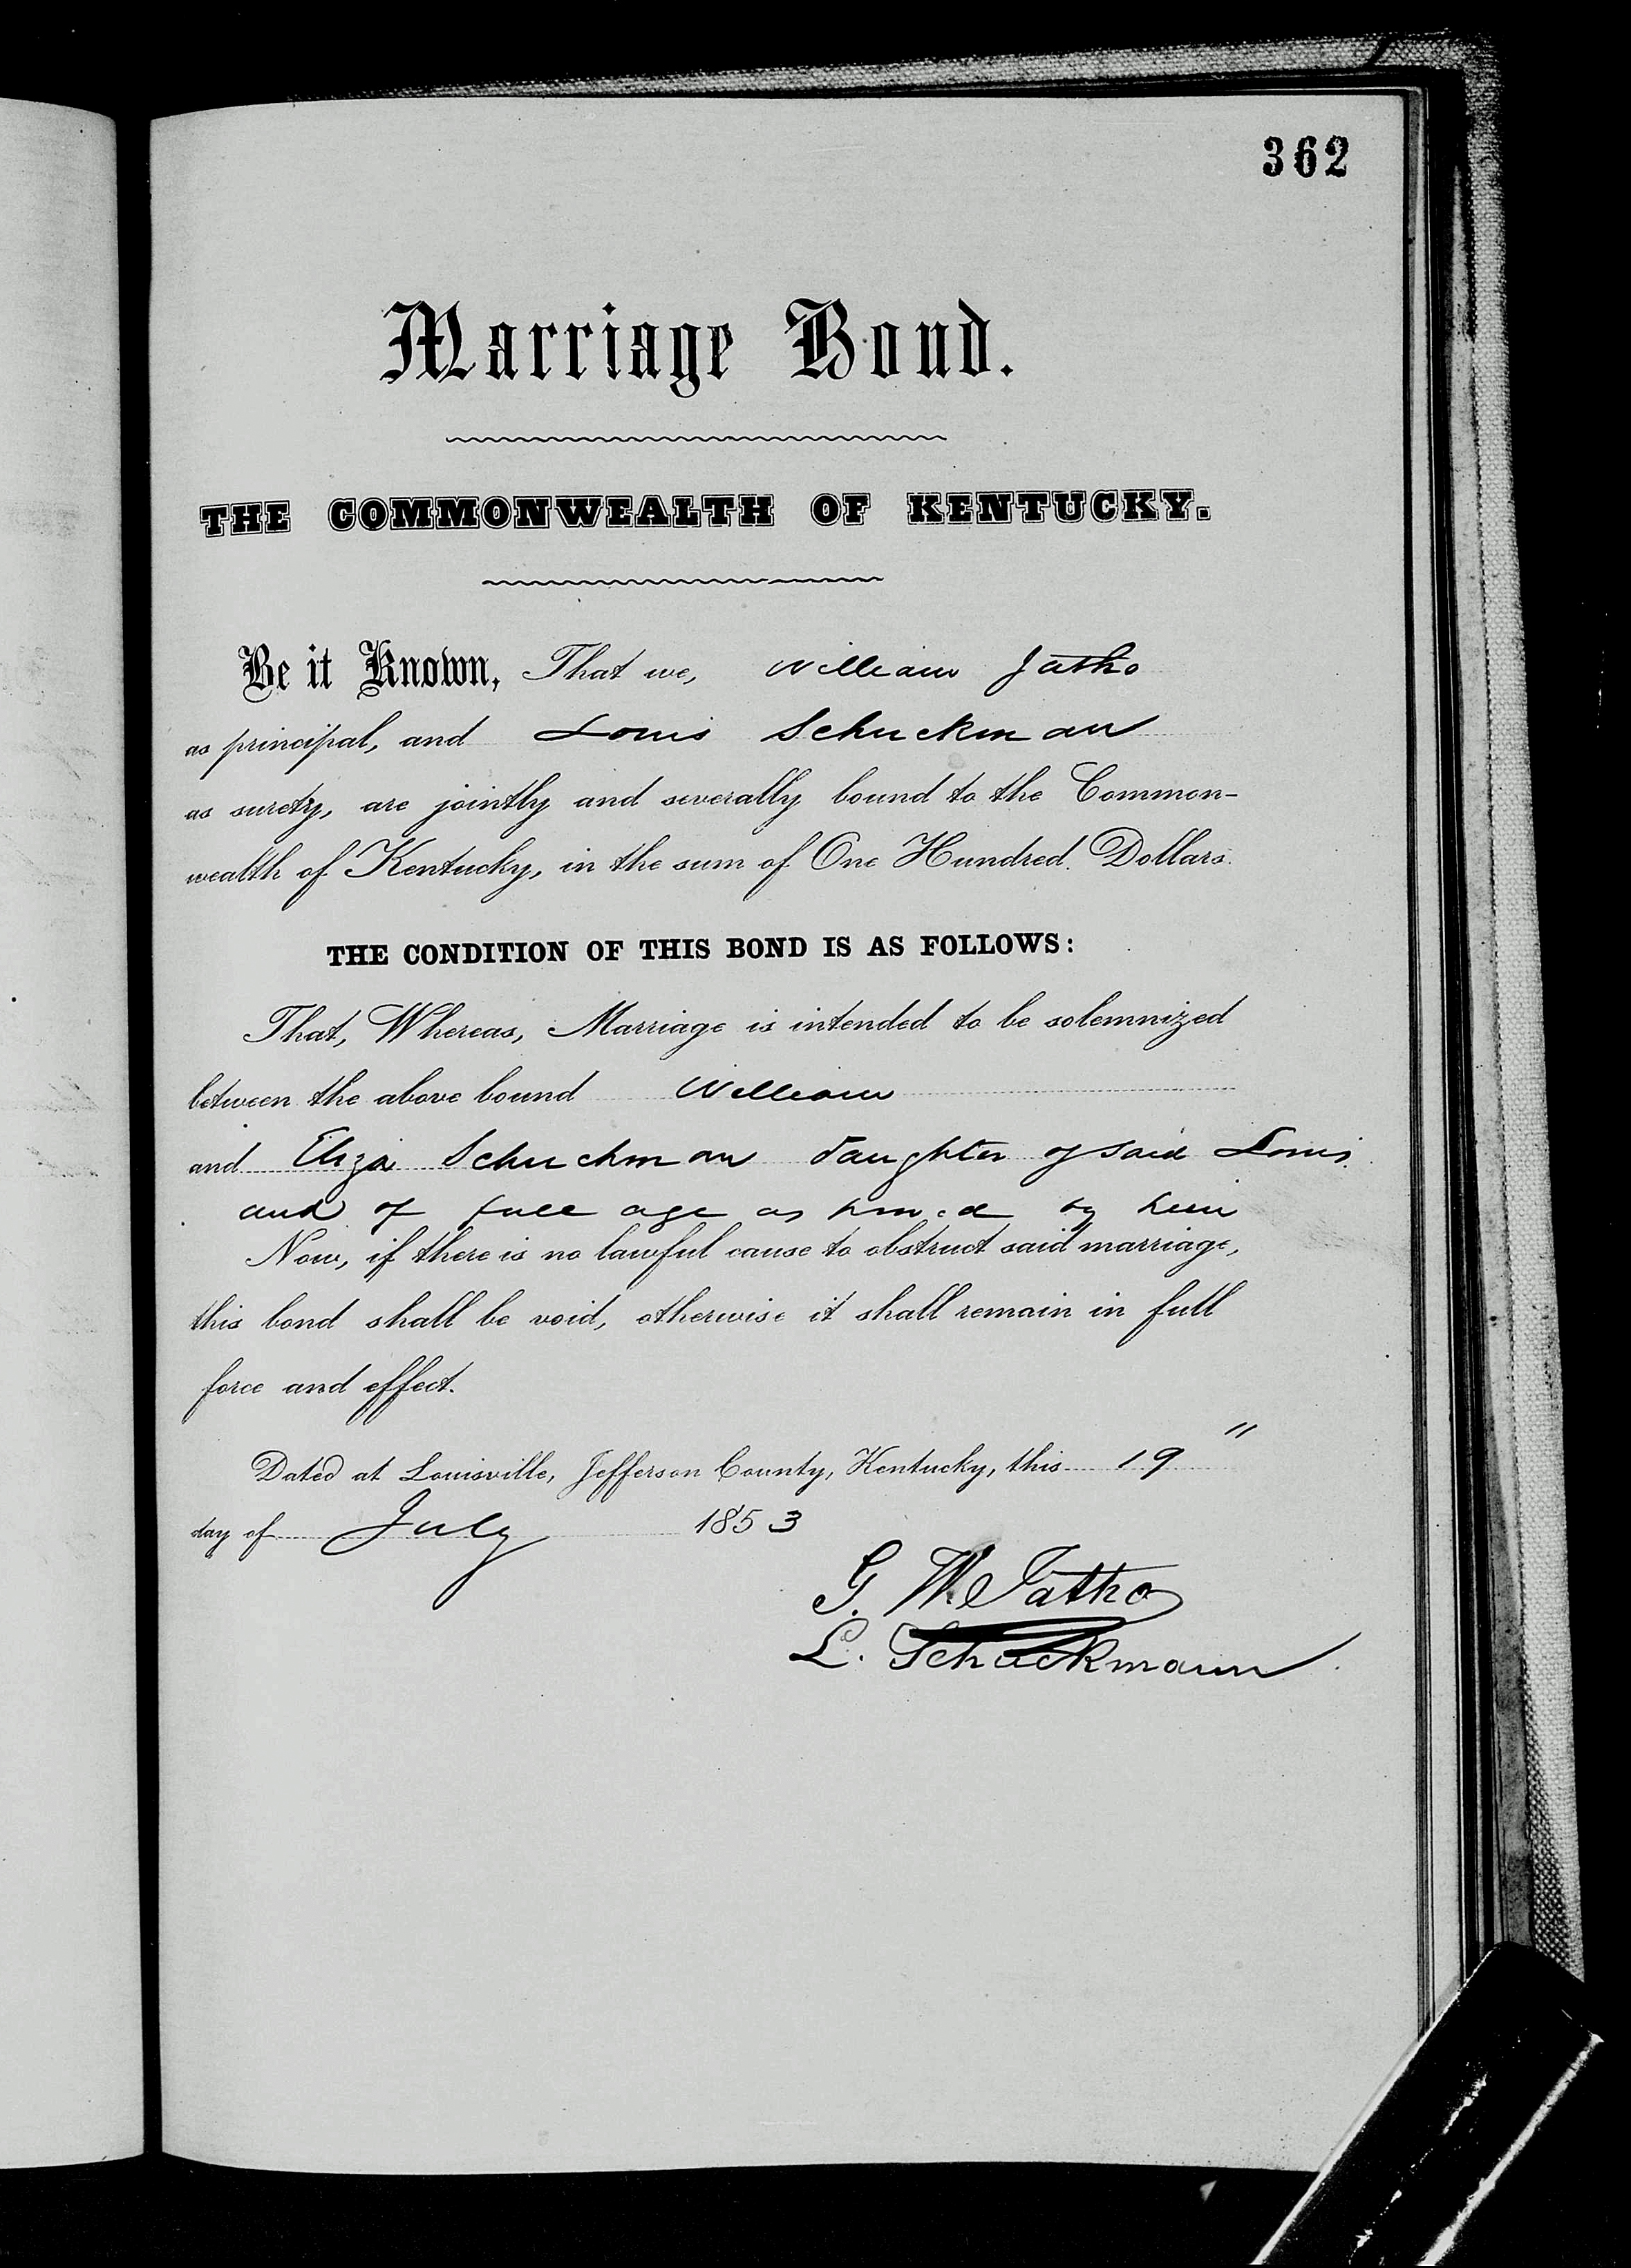 362
Marriage Bond.
THE COMMONWEALTH OF KENTUCKY.
Be it Known, That we, William Jatho
as principal, and Louis Schuckman
as surety, are jointly and severally bound to the Common-
wealth of Kentucky, in the sum of One Hundred Dollars.
THE CONDITION OF THIS BOND IS AS FOLLOWS:
That, Whereas, Marriage is intended to be solemnized
between the above bound William
and Eliza Schuchman daughter of said Louis
and of full age as proved by him
Now, if there is no lawful cause to obstruct said marriage,
this bond shall be void, otherwise it shall remain in full
force and effect.
Dated at Louisville, Jefferson County, Kentucky, this 19"
day of July 1853
G. W. Jatho
L. Schuckmann